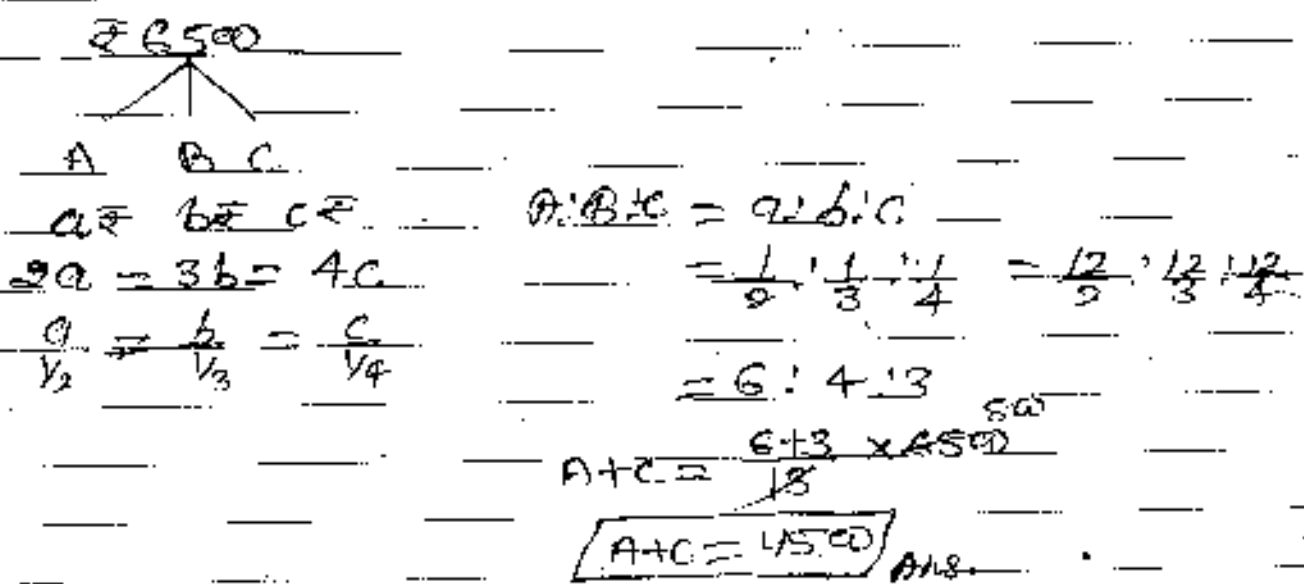 ₹ 6500
A B C
a₹ b₹ c₹
2a = 3b = 4c
a/(1/2) = b/(1/3) = c/(1/4)
A:B:C = a:b:c
= 1/2 : 1/3 : 1/4 = 12/2 : 12/3 : 12/4
= 6 : 4 : 3
A+C = (6+3)/13 × 6500 500
A+C = 4500 Ans.